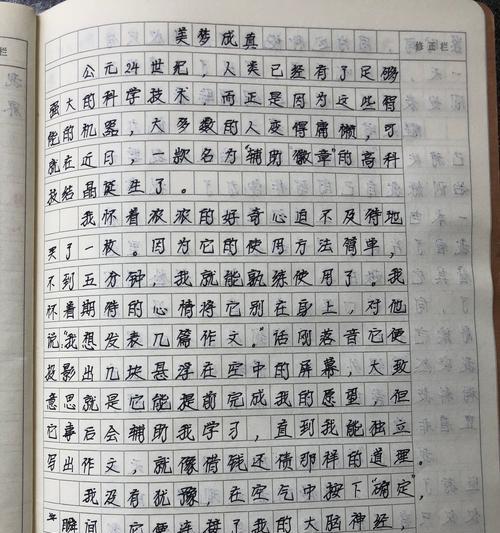 美梦成真
修正栏
公元24世纪，人类已经有了足够
强大的科学技术，而正是因为这些智
能的机器，大多数的人变得庸懒，可
就在近日，一款名为“辅助”徽章”的高科
技结晶诞生了。
我怀着浓浓的好奇心迫不及待地
买了一枚。因为它的使用方法简单，
不到五分钟，我就能熟练使用了。我
怀着期待的心情将它别在身上，对他
说“我想发表几篇作文。”话刚落音它便
投影出几块悬浮在空中的屏幕，大致
意思就是它能提前完成我的愿望，但
它事后会辅助我学习，直到我能独立
写出作文，就像借钱还债那样的道理。
我没有犹豫，在空气中按下“确定”，
瞬间，它便连接了我的大脑神经，